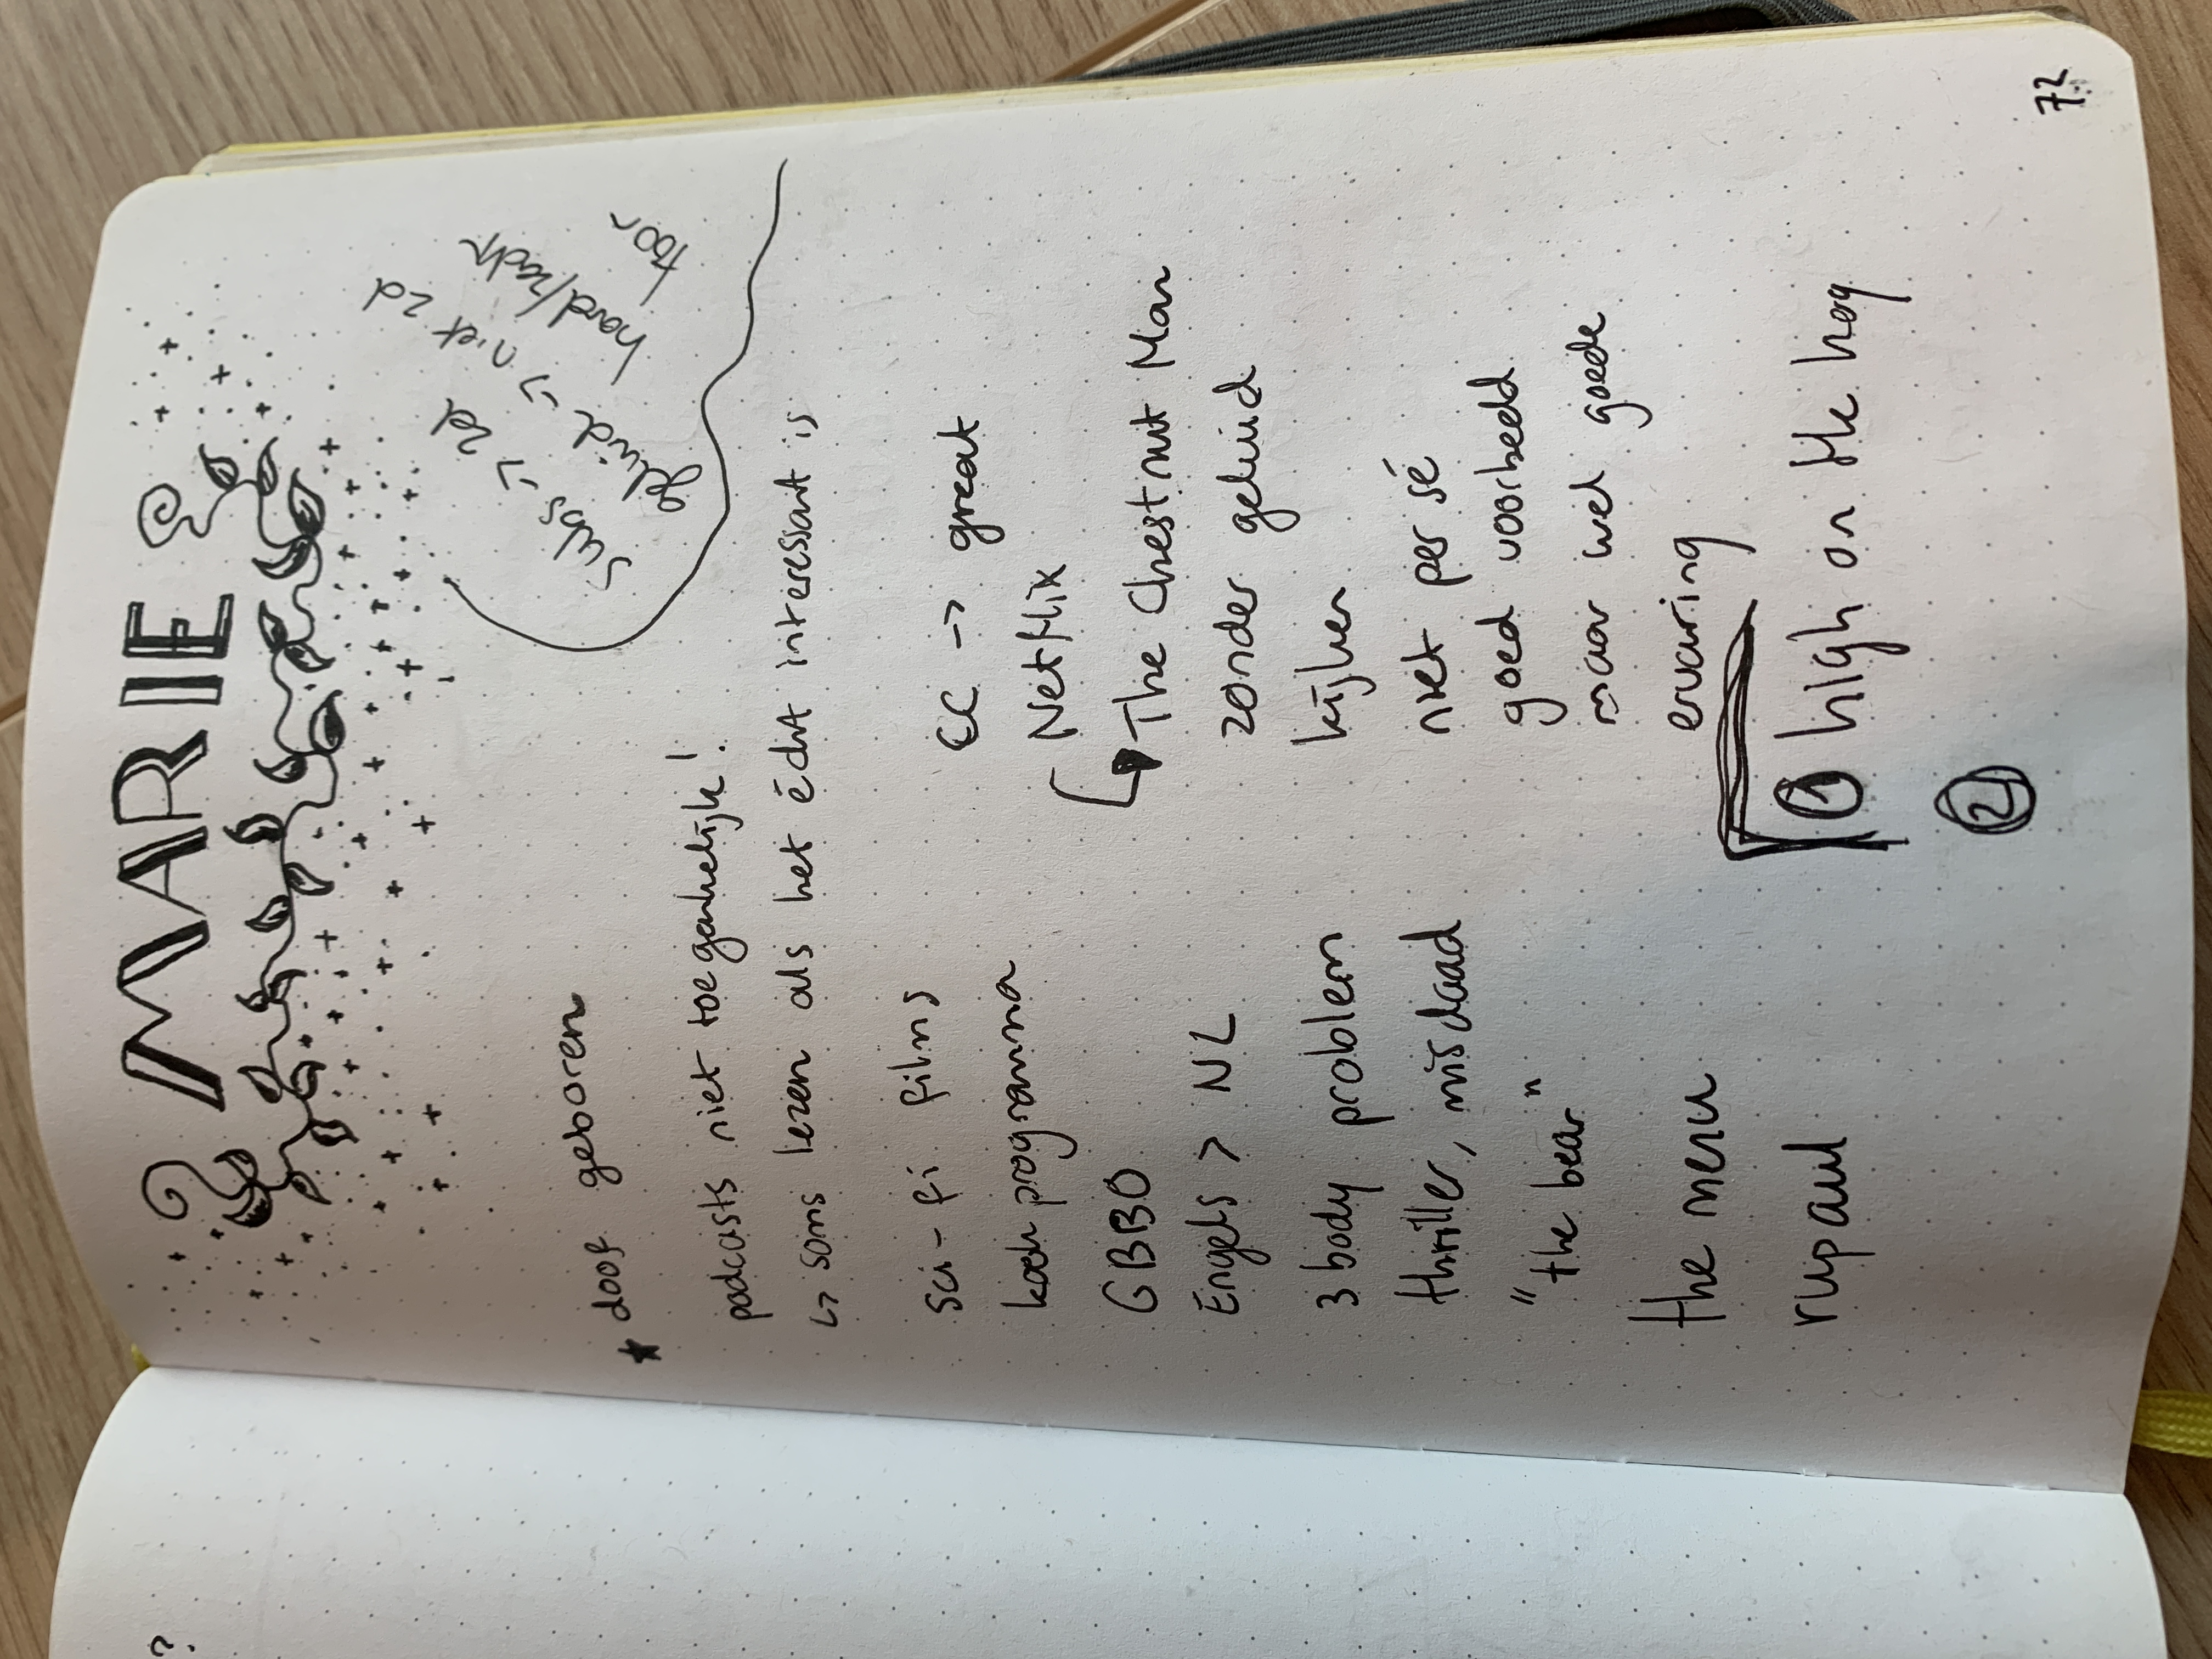 ?
MARIE
subs -> 2d
geluid -> niet 2d
hard/zacht
toon
★ doof geboren
podcasts niet toegankelijk!
↳ soms lezen als het écht interessant is
sci-fi films
kookprogramma
GBBO
Engels > NL
3 body problem
thriller, misdaad
"the bear"
the menu
rupaul
EC -> great
Netflix
The Chestnut Man
zonder geluid
kijken
niet per sé
goed voorbeeld
maar wel goede
ervaring
1 high on the hog
2
72